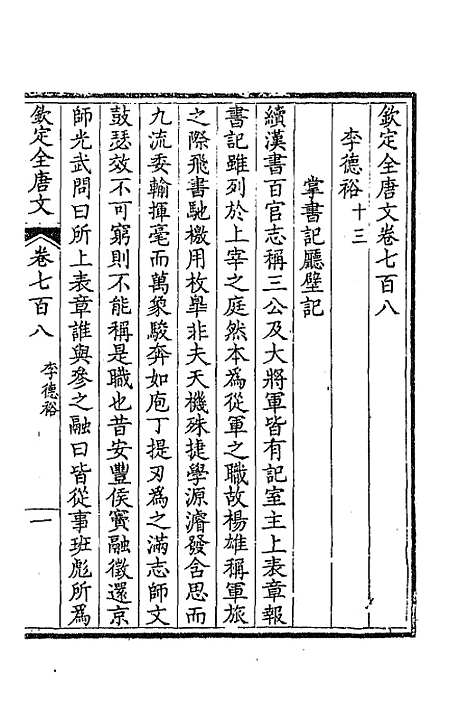 欽定全唐文卷七百八
李德裕十三
掌書記廳壁記
續漢書百官志稱三公及大將軍皆有記室主上表章報
書記雖列於上宰之庭然本為從軍之職故楊雄稱軍旅
之際飛書馳檄用枚皋非夫天機殊捷學源濬發含思而
九流委輸揮毫而萬象駿奔如庖丁提刃為之滿志師文
鼓瑟效不可窮則不能稱是職也昔安豐侯竇融徵還京
師光武問曰所上表章誰與參之融曰皆從事班彪所為
欽定全唐文 卷七百八 李德裕 一